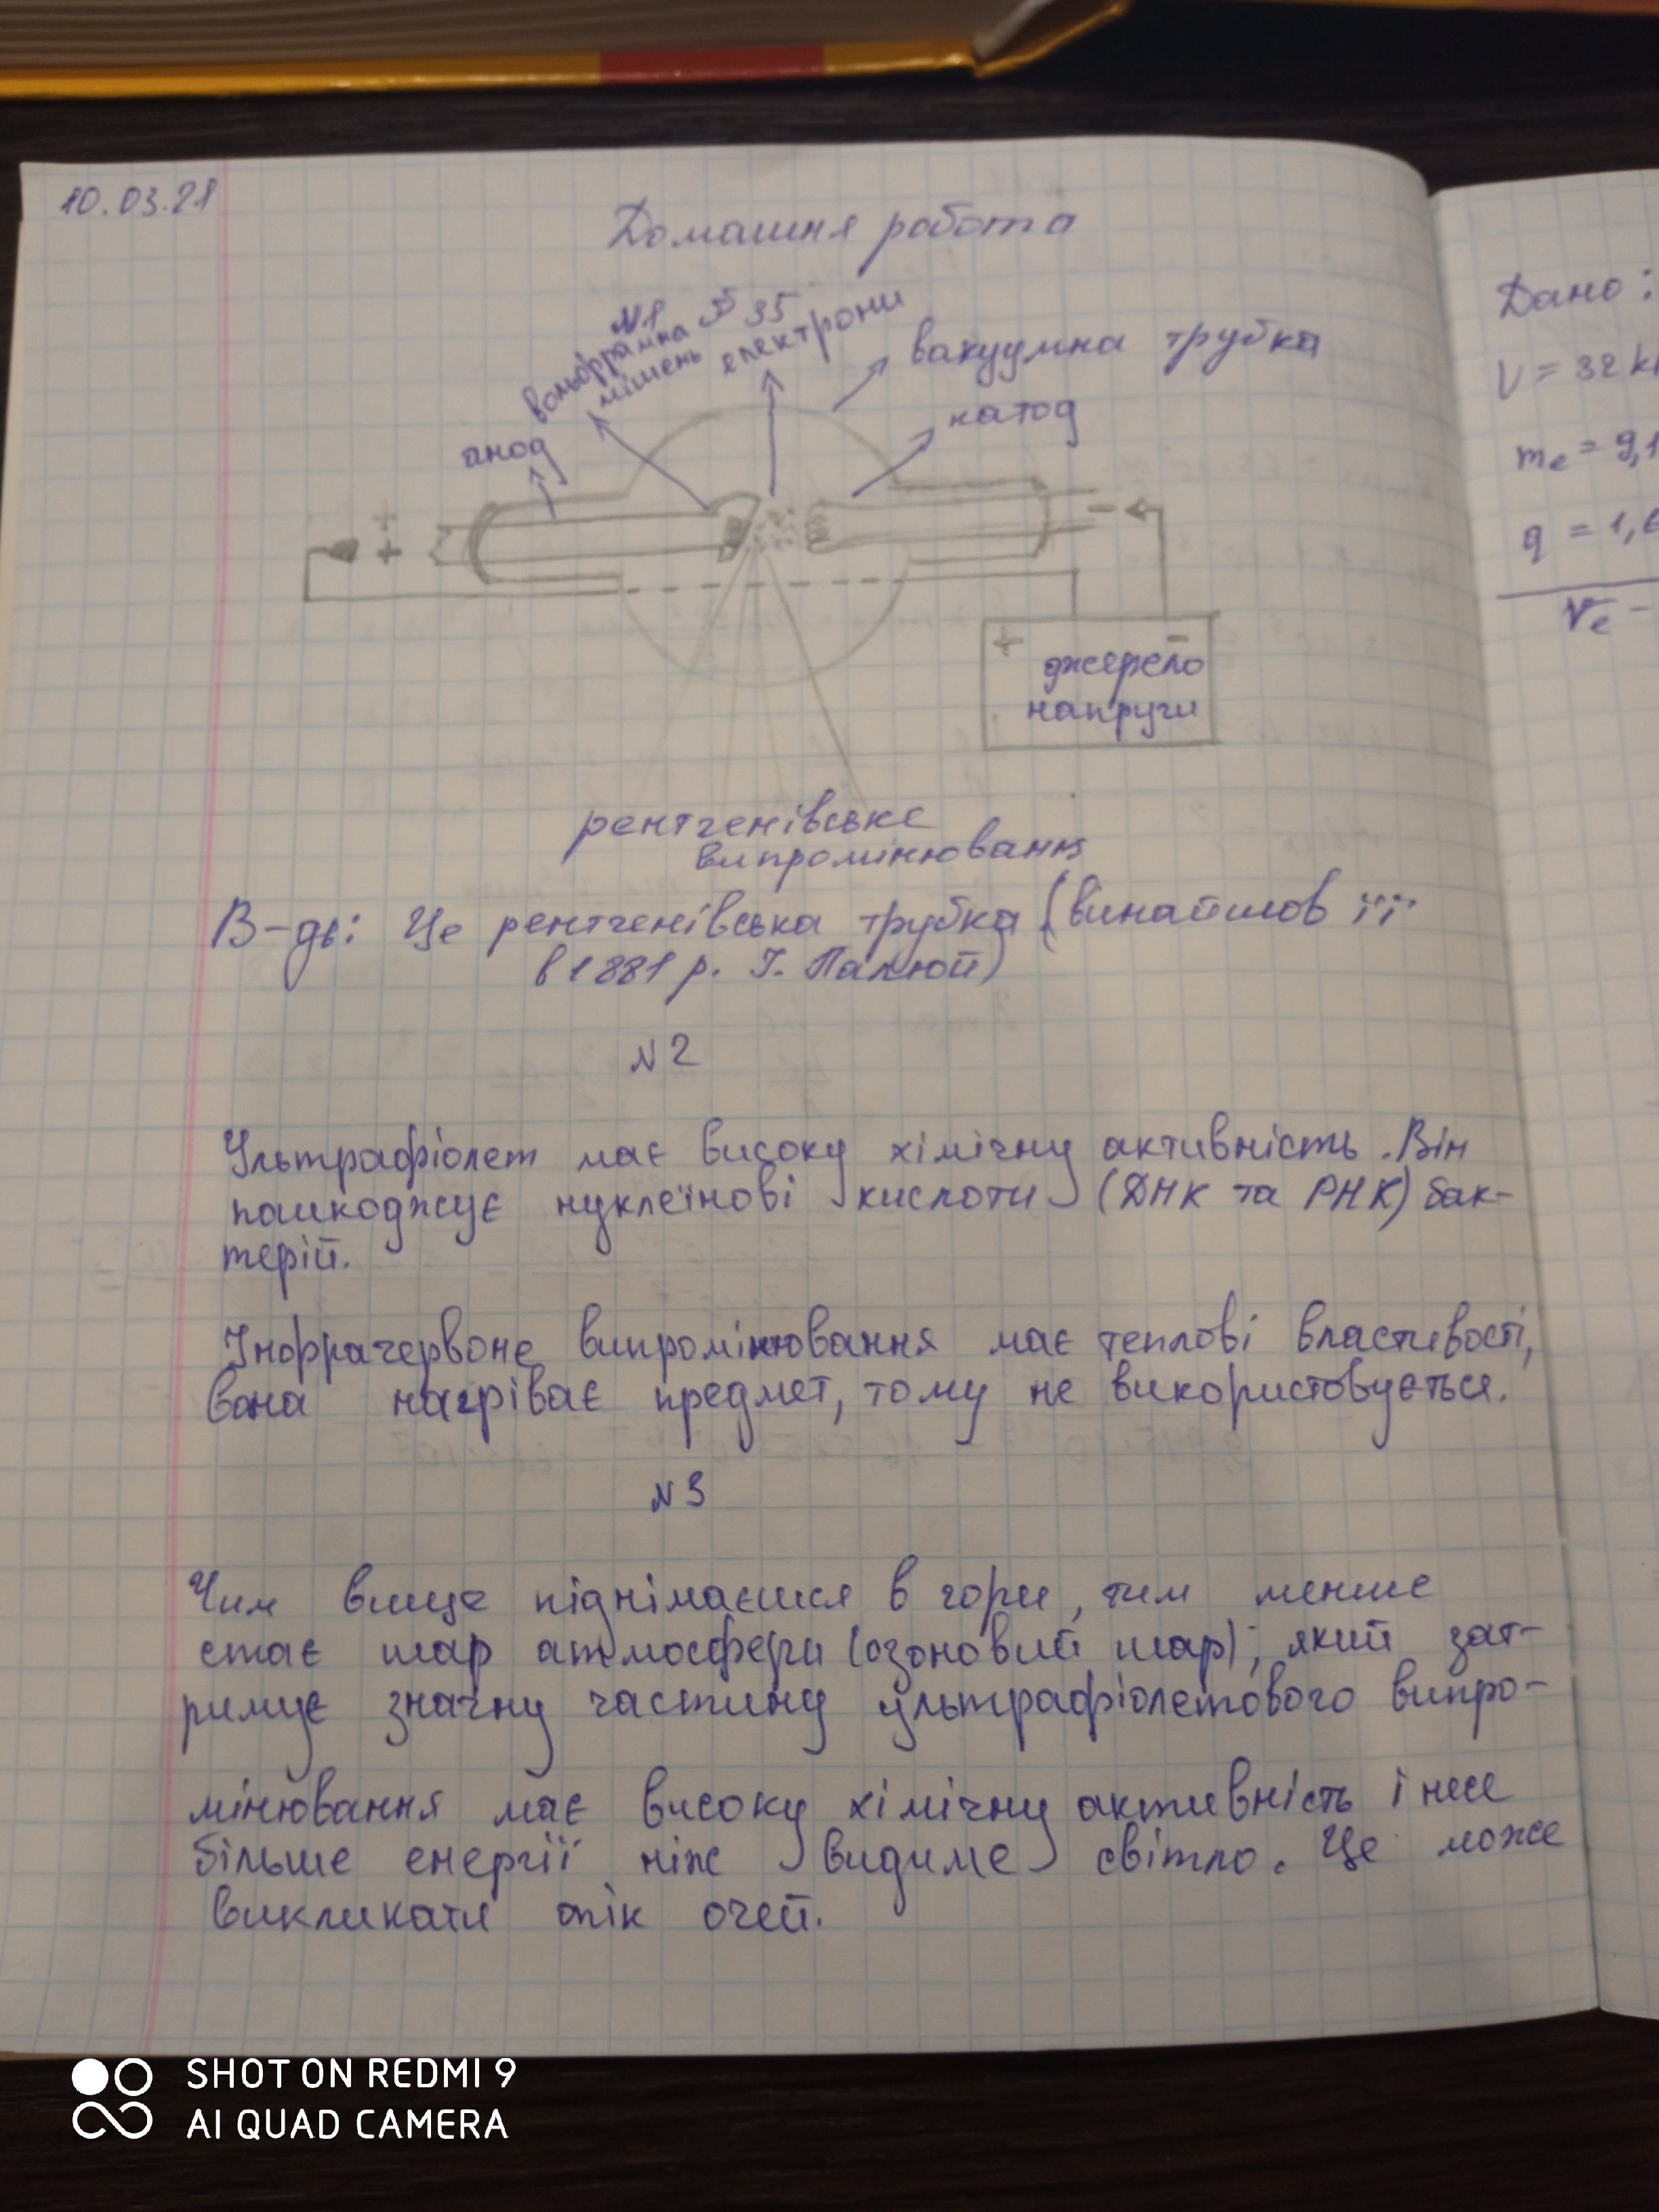 10.03.21
Домашня робота
N1 § 35
вольфрамна
мішень
електрони
вакуумна трубка
анод
катод
+ -
+
+ -
джерело
напруги
рентгенівське
випромінювання
В-дь: Це рентгенівська трубка (винайшов її
в 1881 р. І. Палюй)
N 2
Ультрафіолет має високу хімічну активність. Він
пошкоджує нуклеїнові кислоти (ДНК та РНК) бак-
терій.
Інфрачервоне випромінювання має теплові властивості,
вона нагріває предмет, тому не використовується.
N 3
Чим вище піднімаєшся в гори, тим менше
стає шар атмосфери (озоновий шар), який зат-
римує значну частину ультрафіолетового випро-
мінювання має високу хімічну активність і несе
більше енергії ніж видиме світло. Це може
викликати опік очей.
Дано:
U = 32 k
me = 9,1
q = 1,6
Ve -
SHOT ON REDMI 9
AI QUAD CAMERA